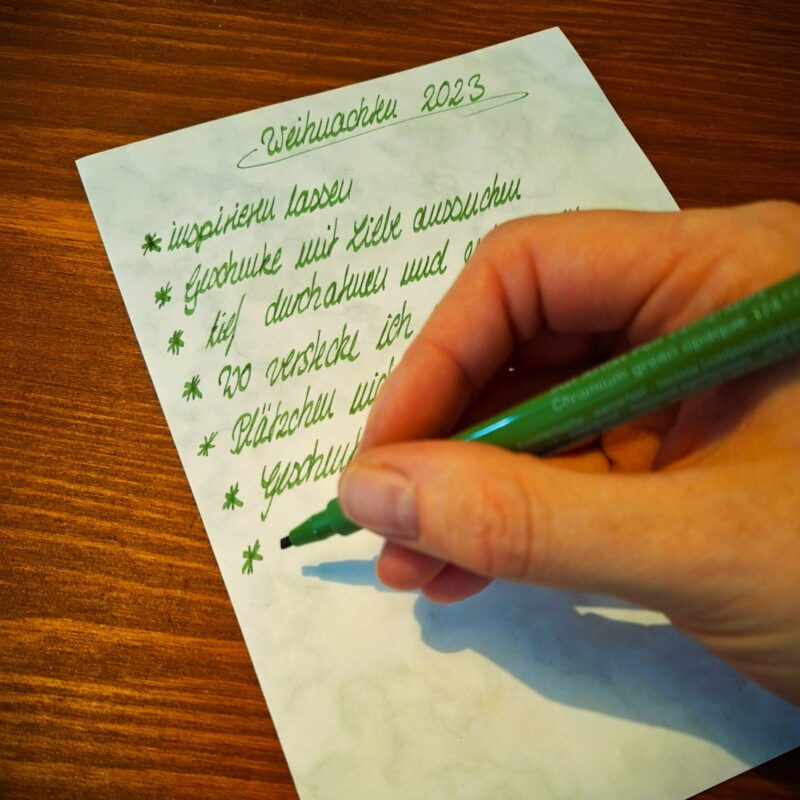 Weihnachten 2023
* inspirieren lassen
* Geschenke mit Liebe aussuchen
* tief durchatmen und
* Wo verstecke ich
* Plätzchen
* Geschenk
*
Chromium green opaque 174